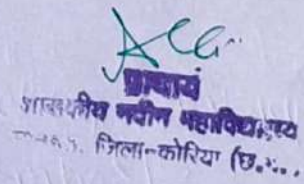 प्राचार्य
शासकीय नवीन महाविद्यालय
जिला-कोरिया (छ.